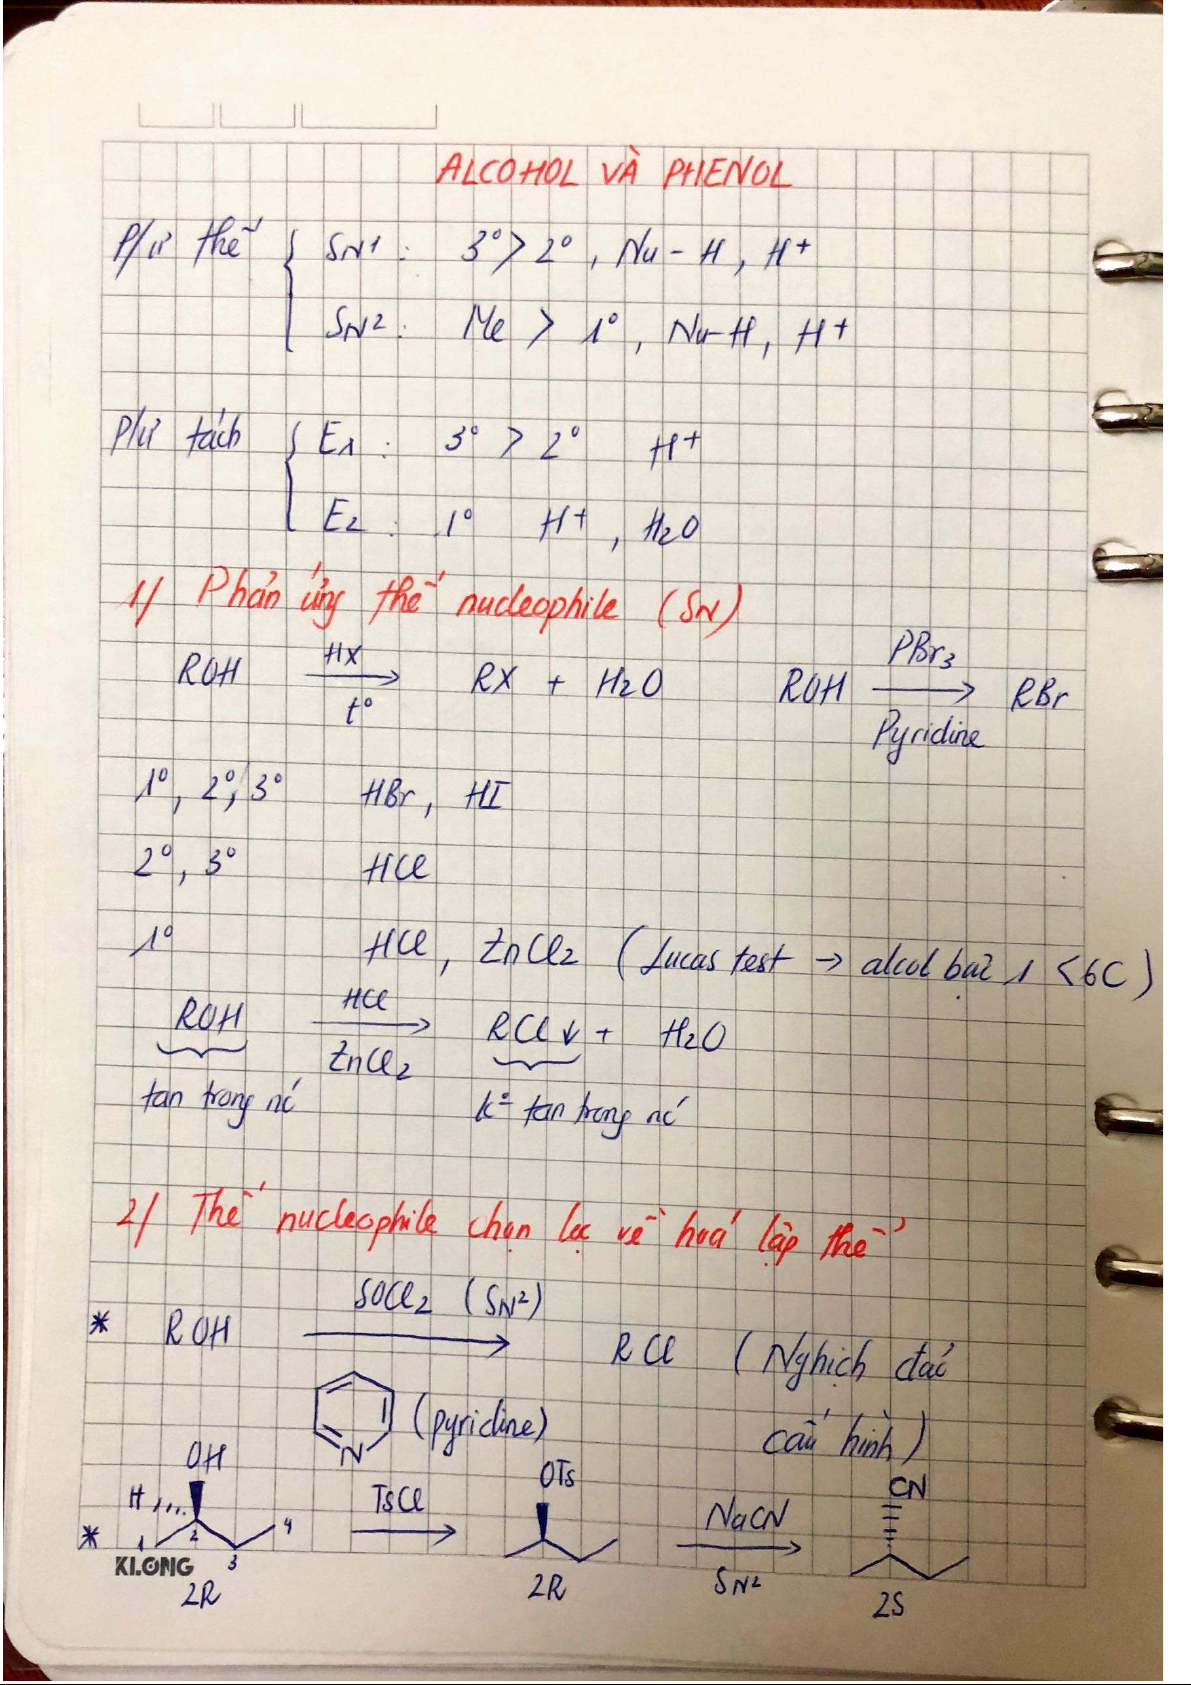 ALCOHOL VÀ PHENOL
P/ứ thế { SN1 : 3° > 2° , Nu - H , H+
SN2 : Me > 1° , Nu-H , H+
P/ứ tách { E1 : 3° > 2° H+
E2 : 1° H+ , H2O
1/ Phản ứng thế nucleophile (SN)
ROH HX t° → RX + H2O ROH PBr3 Pyridine → RBr
1°, 2°, 3° HBr, HI
2°, 3° HCl
1° HCl, ZnCl2 (Lucas test → alcol bậc 1 <6C)
ROH HCl ZnCl2 → RCl ↓ + H2O
tan trong nć k= tan trong nć
2/ Thế nucleophile chọn lọc về hoá lập thể
* ROH SOCl2 (SN2) → RCl (Nghịch đảo
N (pyridine) cấu hình)
OH OTs CN
H TsCl NaCN
* 1 2 3 4 → → SN2
KLONG
2R 2R 2S